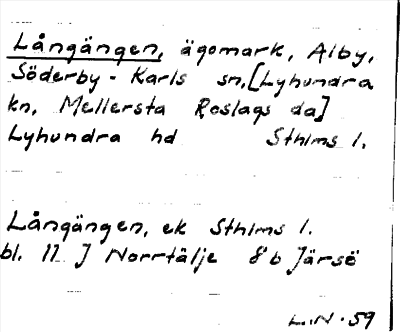 Långängen, ägomark, Alby,
Söderby-Karls sn, [Lyhundra
kn, Mellersta Roslags da]
Lyhundra hd Sthlms l.
Långängen, ek Sthlms l.
bl. 11 J Norrtälje 8 b Järsö
L.N. 59